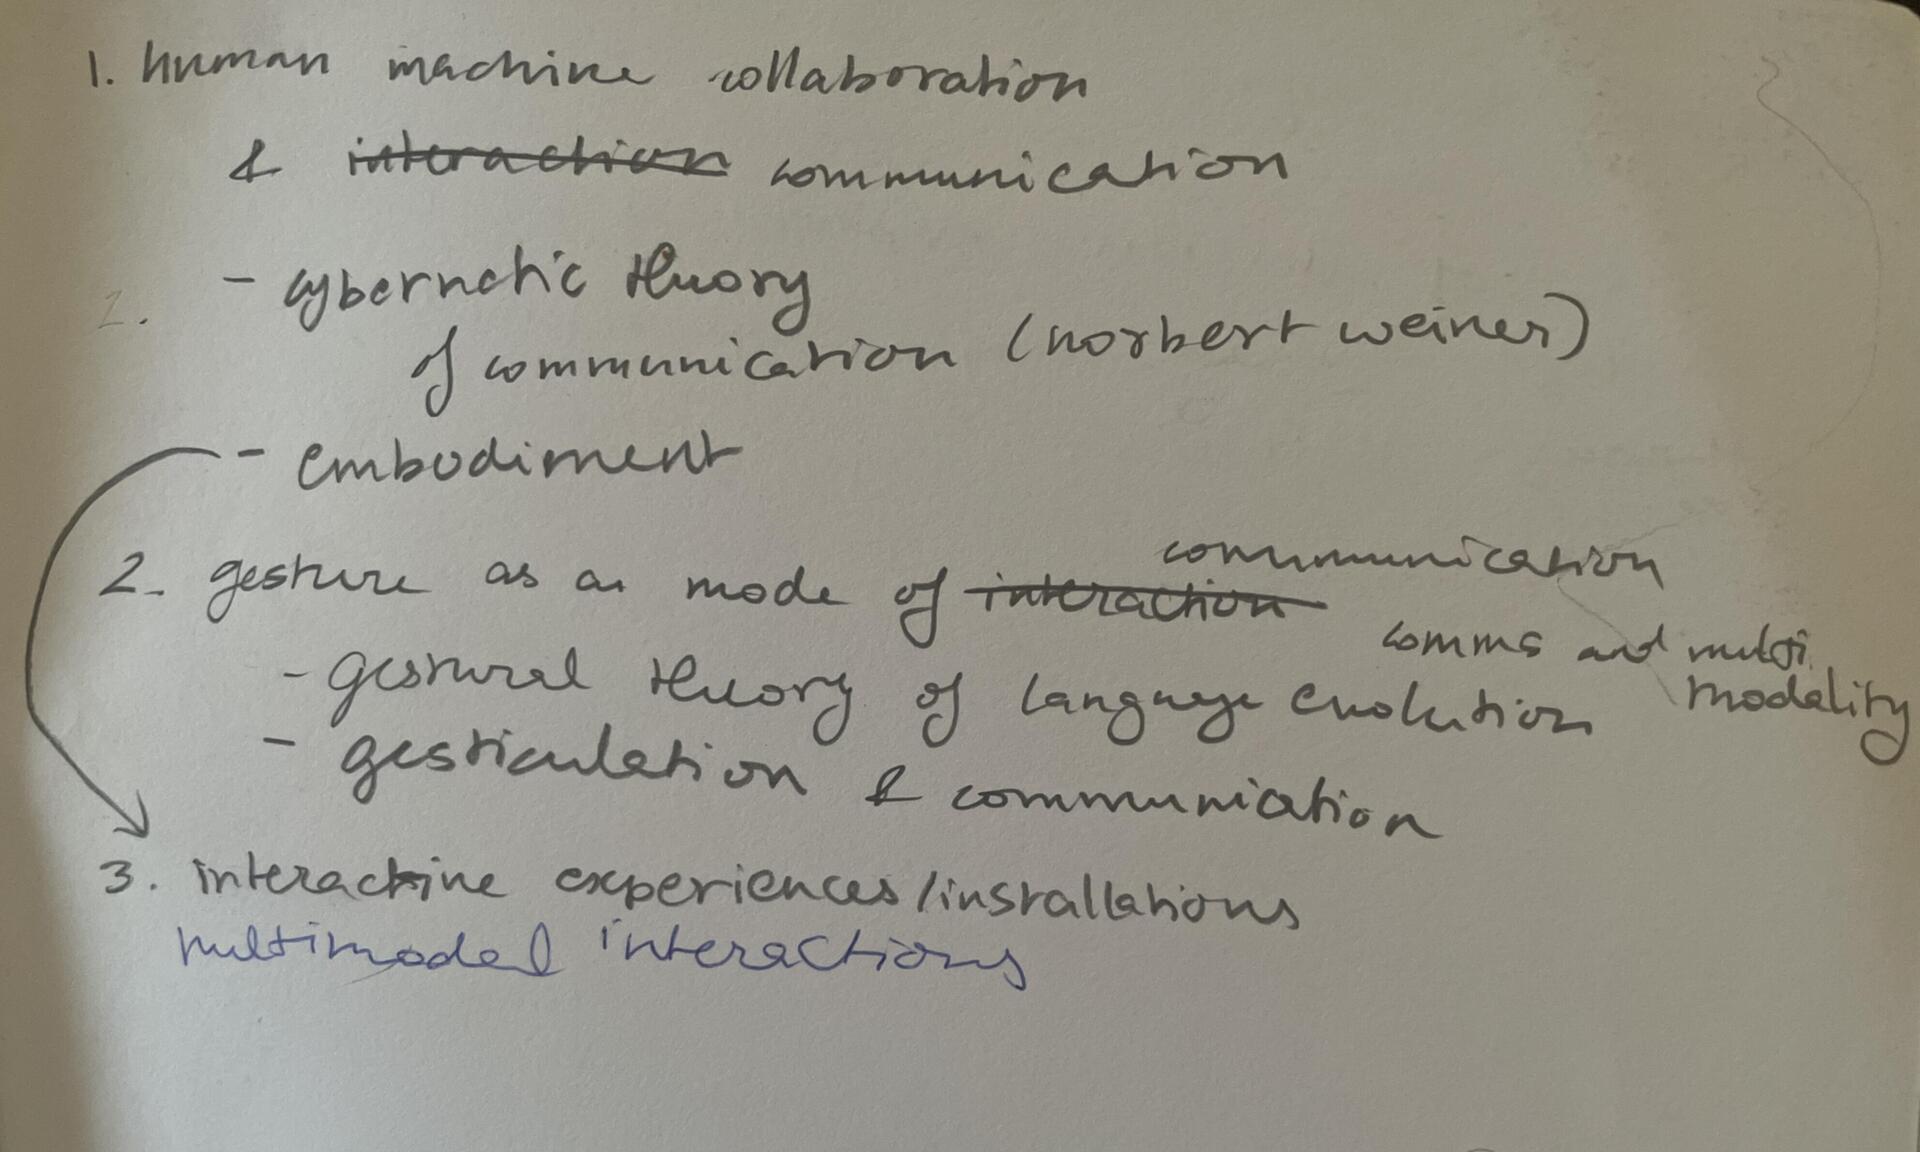 1. human machine collaboration
& interaction communication
- cybernetic theory
2.
of communication (norbert weiner)
- embodiment
communication
2. gesture as a mode of interaction
comms and multi
modality
- gestural theory of language evolution
- gesticulation & communication
3. interactive experiences/installations
multimodal interactions